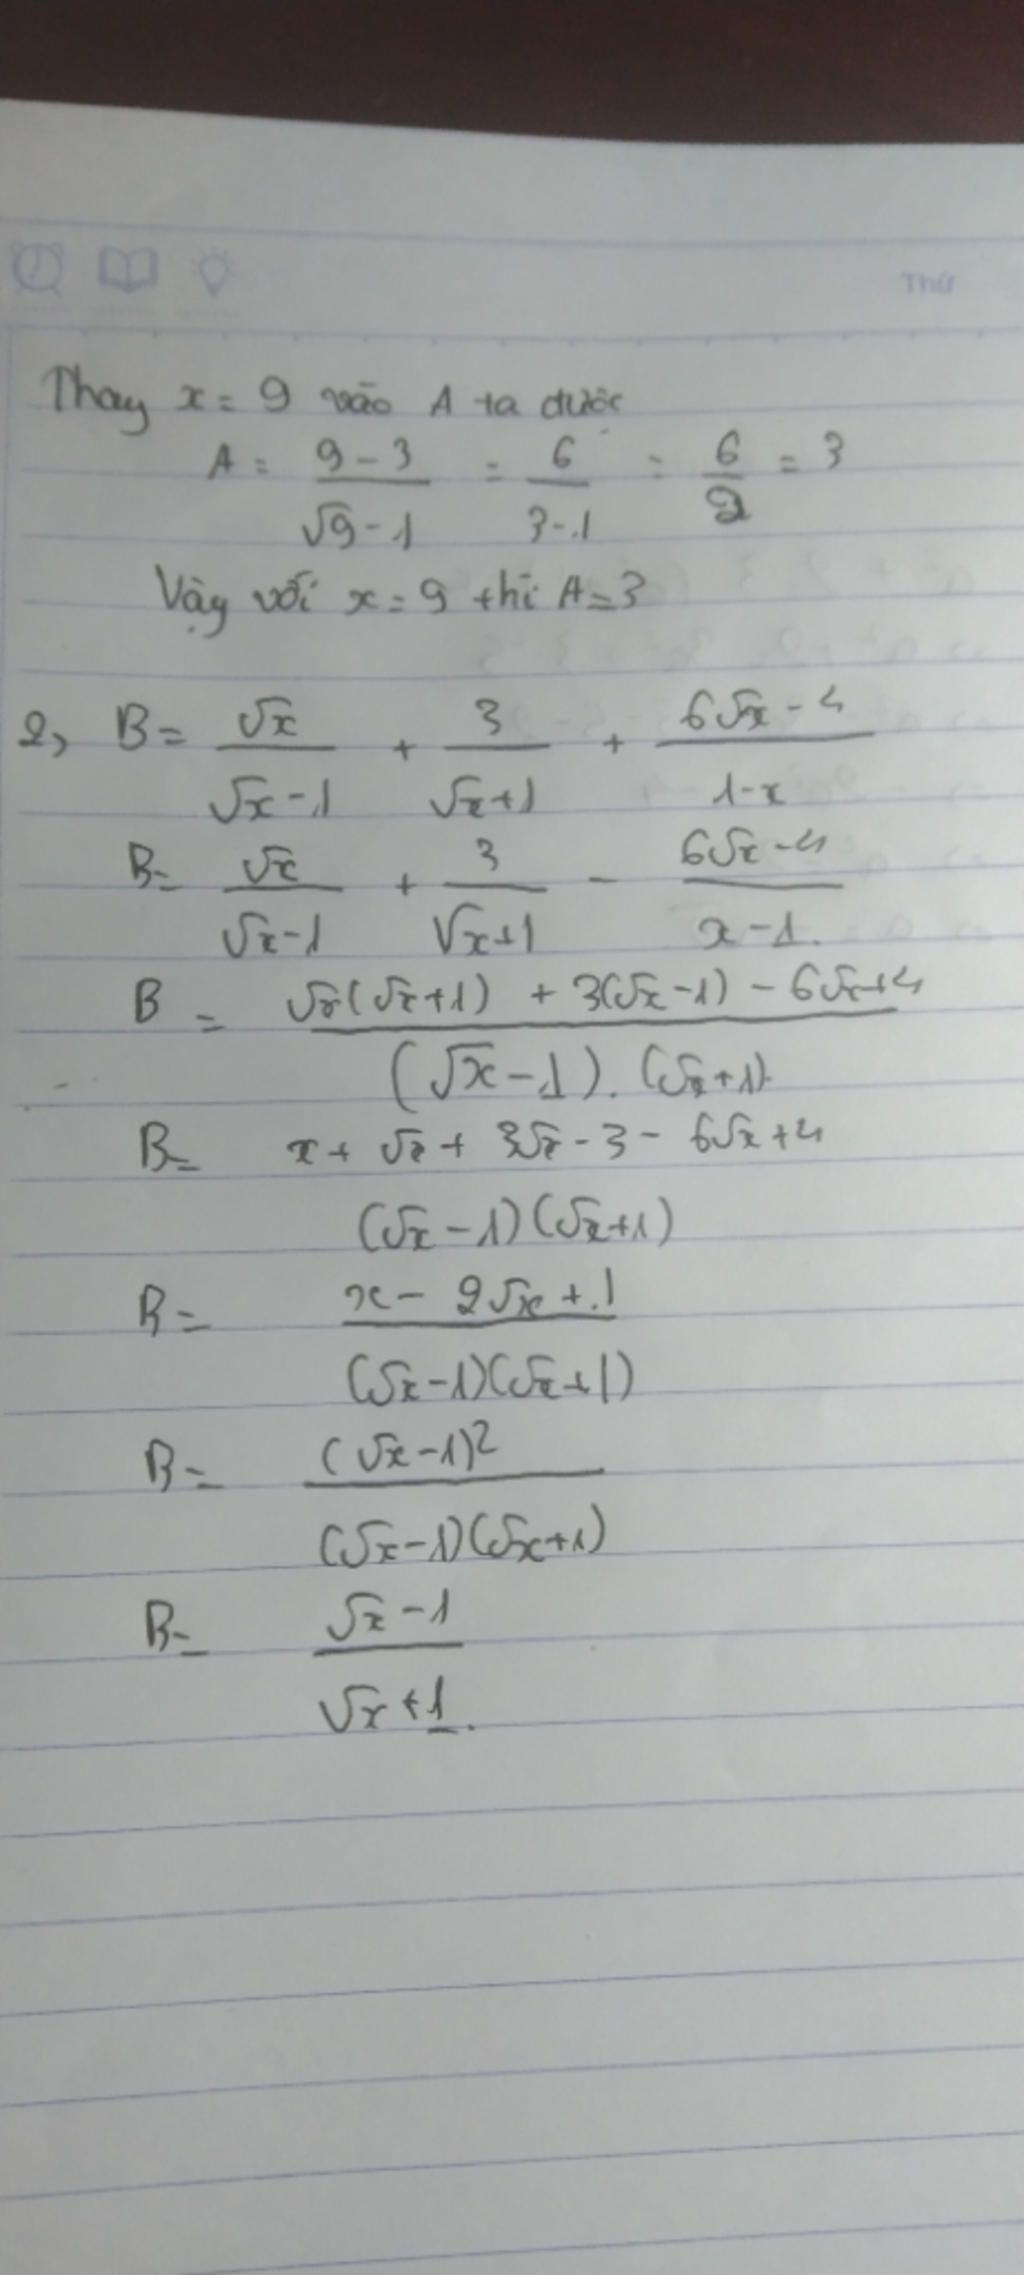 Thứ
Thay x = 9 vào A ta được
A = \frac{9-3}{\sqrt{9}-1} = \frac{6}{3-1} = \frac{6}{2} = 3
Vậy với x = 9 thì A = 3
2, B = \frac{\sqrt{x}}{\sqrt{x}-1} + \frac{3}{\sqrt{x}+1} + \frac{6\sqrt{x}-4}{1-x}
B = \frac{\sqrt{x}}{\sqrt{x}-1} + \frac{3}{\sqrt{x}+1} - \frac{6\sqrt{x}-4}{x-1}
B = \frac{\sqrt{x}(\sqrt{x}+1) + 3(\sqrt{x}-1) - 6\sqrt{x}+4}{(\sqrt{x}-1).(\sqrt{x}+1)}
B = \frac{x+\sqrt{x}+3\sqrt{x}-3-6\sqrt{x}+4}{(\sqrt{x}-1)(\sqrt{x}+1)}
B = \frac{x-2\sqrt{x}+1}{(\sqrt{x}-1)(\sqrt{x}+1)}
B = \frac{(\sqrt{x}-1)^2}{(\sqrt{x}-1)(\sqrt{x}+1)}
B = \frac{\sqrt{x}-1}{\sqrt{x}+1}.